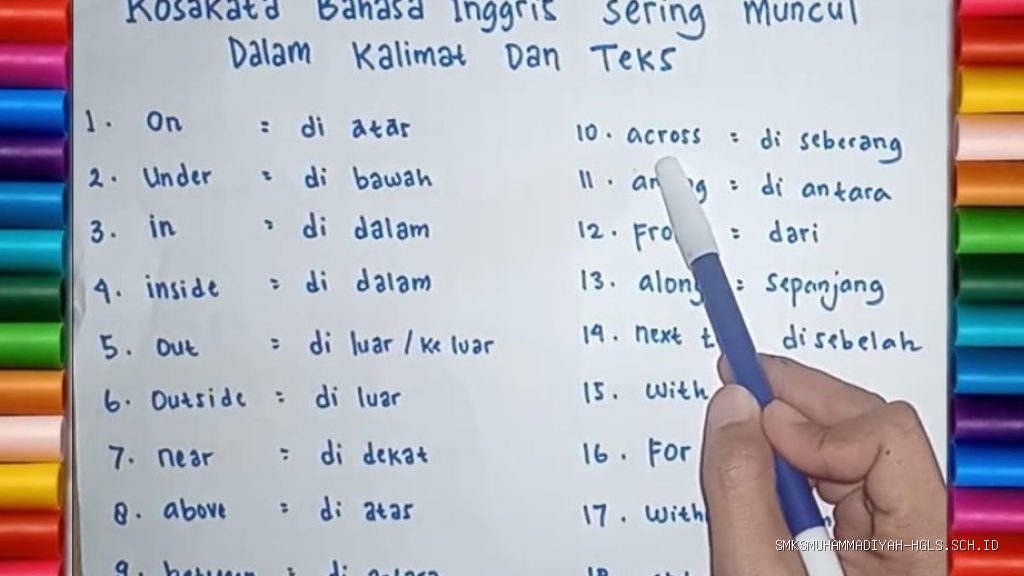 Kosakata Bahasa Inggris Sering Muncul
Dalam Kalimat Dan Teks
1. On = di atar
2. Under = di bawah
3. in = di dalam
4. inside = di dalam
5. Out = di luar / ke luar
6. Outside = di luar
7. near = di dekat
8. above = di atas
9.
10. across = di seberang
11. = di antara
12. = dari
13. along = sepanjang
14. next di sebelah
15. with
16. For
17.
SMKSMUHAMMADIYAH-HGLS.SCH.ID